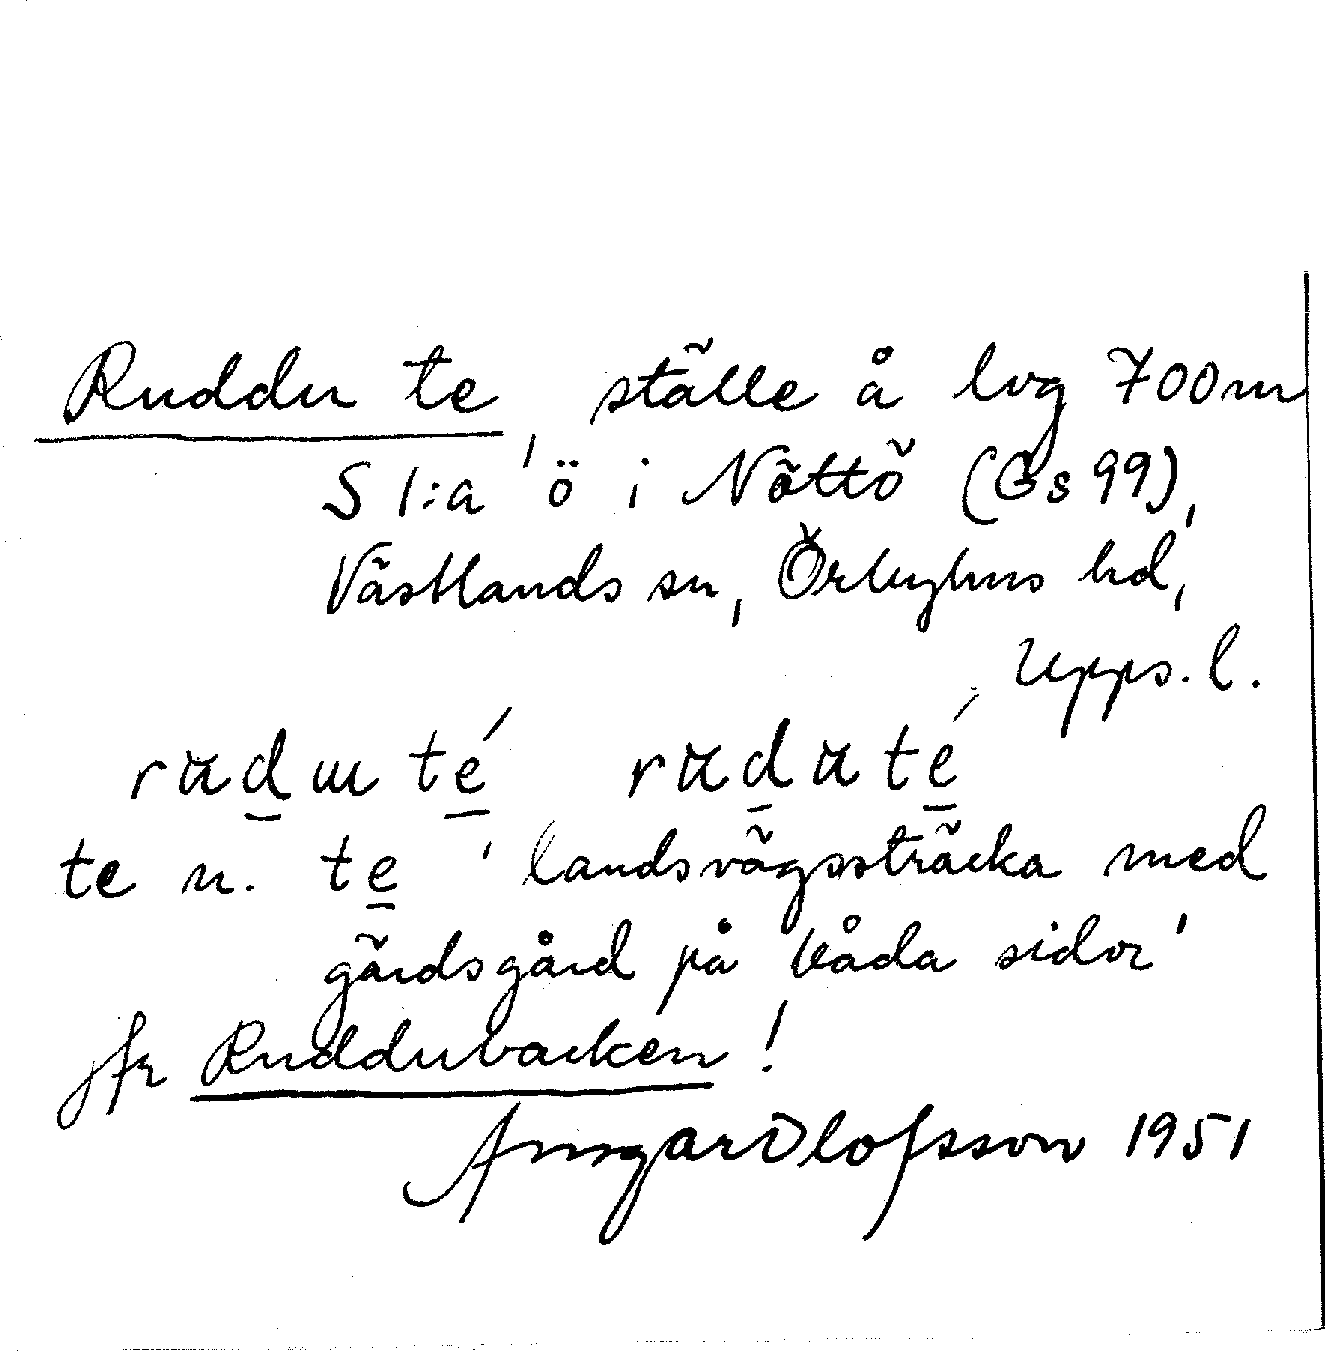 Ruddu te, ställe å lvg 700m
S 1:a ö i Nöttö (Gs 99),
Västlands sn, Örbyhus hd,
Upps. l.
te n. te 'landsvägssträcka med
gärdsgård på båda sidor'
jfr Ruddubacken!
Ansgar Olofsson 1951